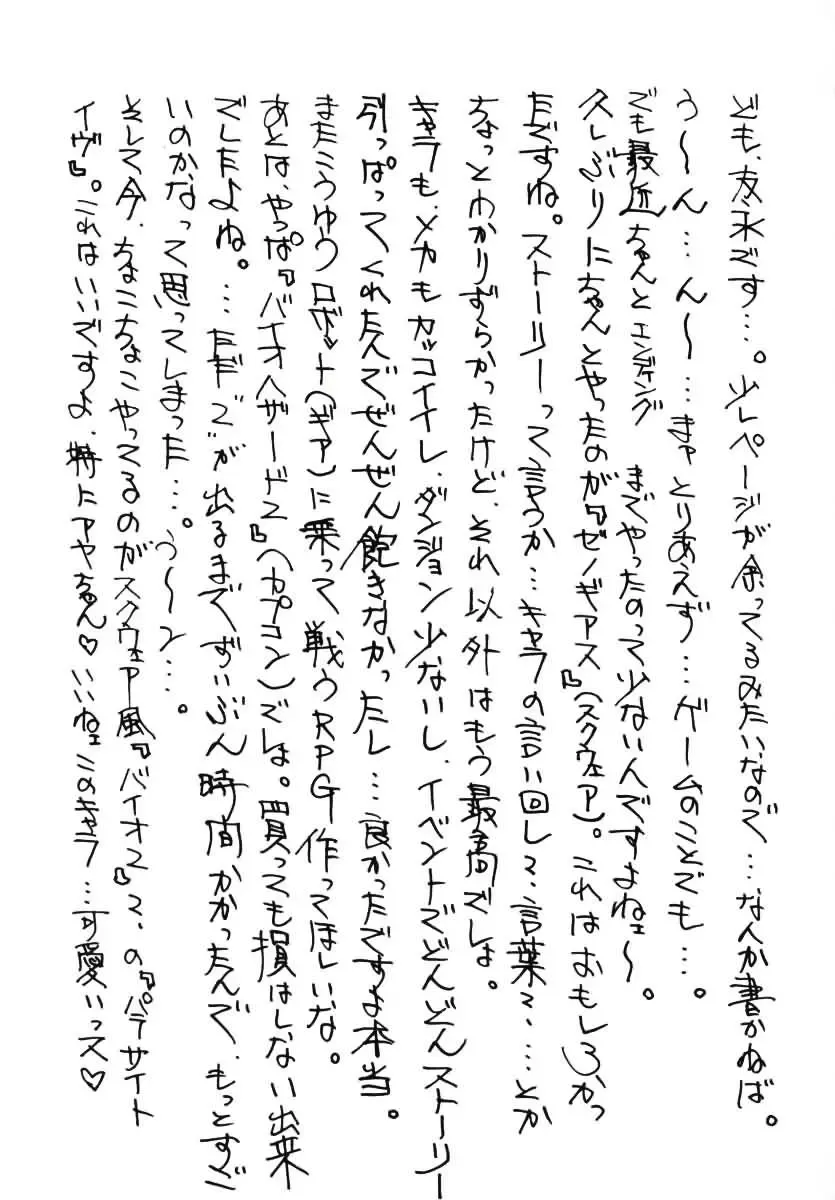 ども、友永です…。少しページが余ってるみたいなので…なんか書かねば。
う〜ん…ん〜…まァとりあえず…ゲームのことでも…。
でも最近ちゃんとエンディングまでやったのって少ないんですよねェ〜。
久しぶりにちゃんとやったのが『ゼノギアス』（スクウェア）。これはおもしろかっ
たですね。ストーリーって言うか…キャラの言い回して、言葉て、…とか
ちょっとわかりずらかったけど、それ以外はもう最高でしょ。
キャラも、メカもカッコイイし、ダンジョン少ないし、イベントでどんどんストーリー
引っぱってくれたんでぜんぜん飽きなかったし…良かったですよ本当。
またこうゆうロボット（ギア）に乗って戦うRPG作ってほしいな。
あとは、やっぱ『バイオハザード2』（カプコン）でしょ。買っても損はしない出来
でしたよね。…ただ“2”が出るまでずいぶん時間かかったんで、もっとすご
いのかなって思ってしまった…。う〜ン…。
そして今、ちょこちょこやってるのがスクウェア風『バイオ2』て、の『パラサイト
イヴ』。これはいいですよ、特にアヤちゃん♡いいねェこのキャラ…可愛いっス♡